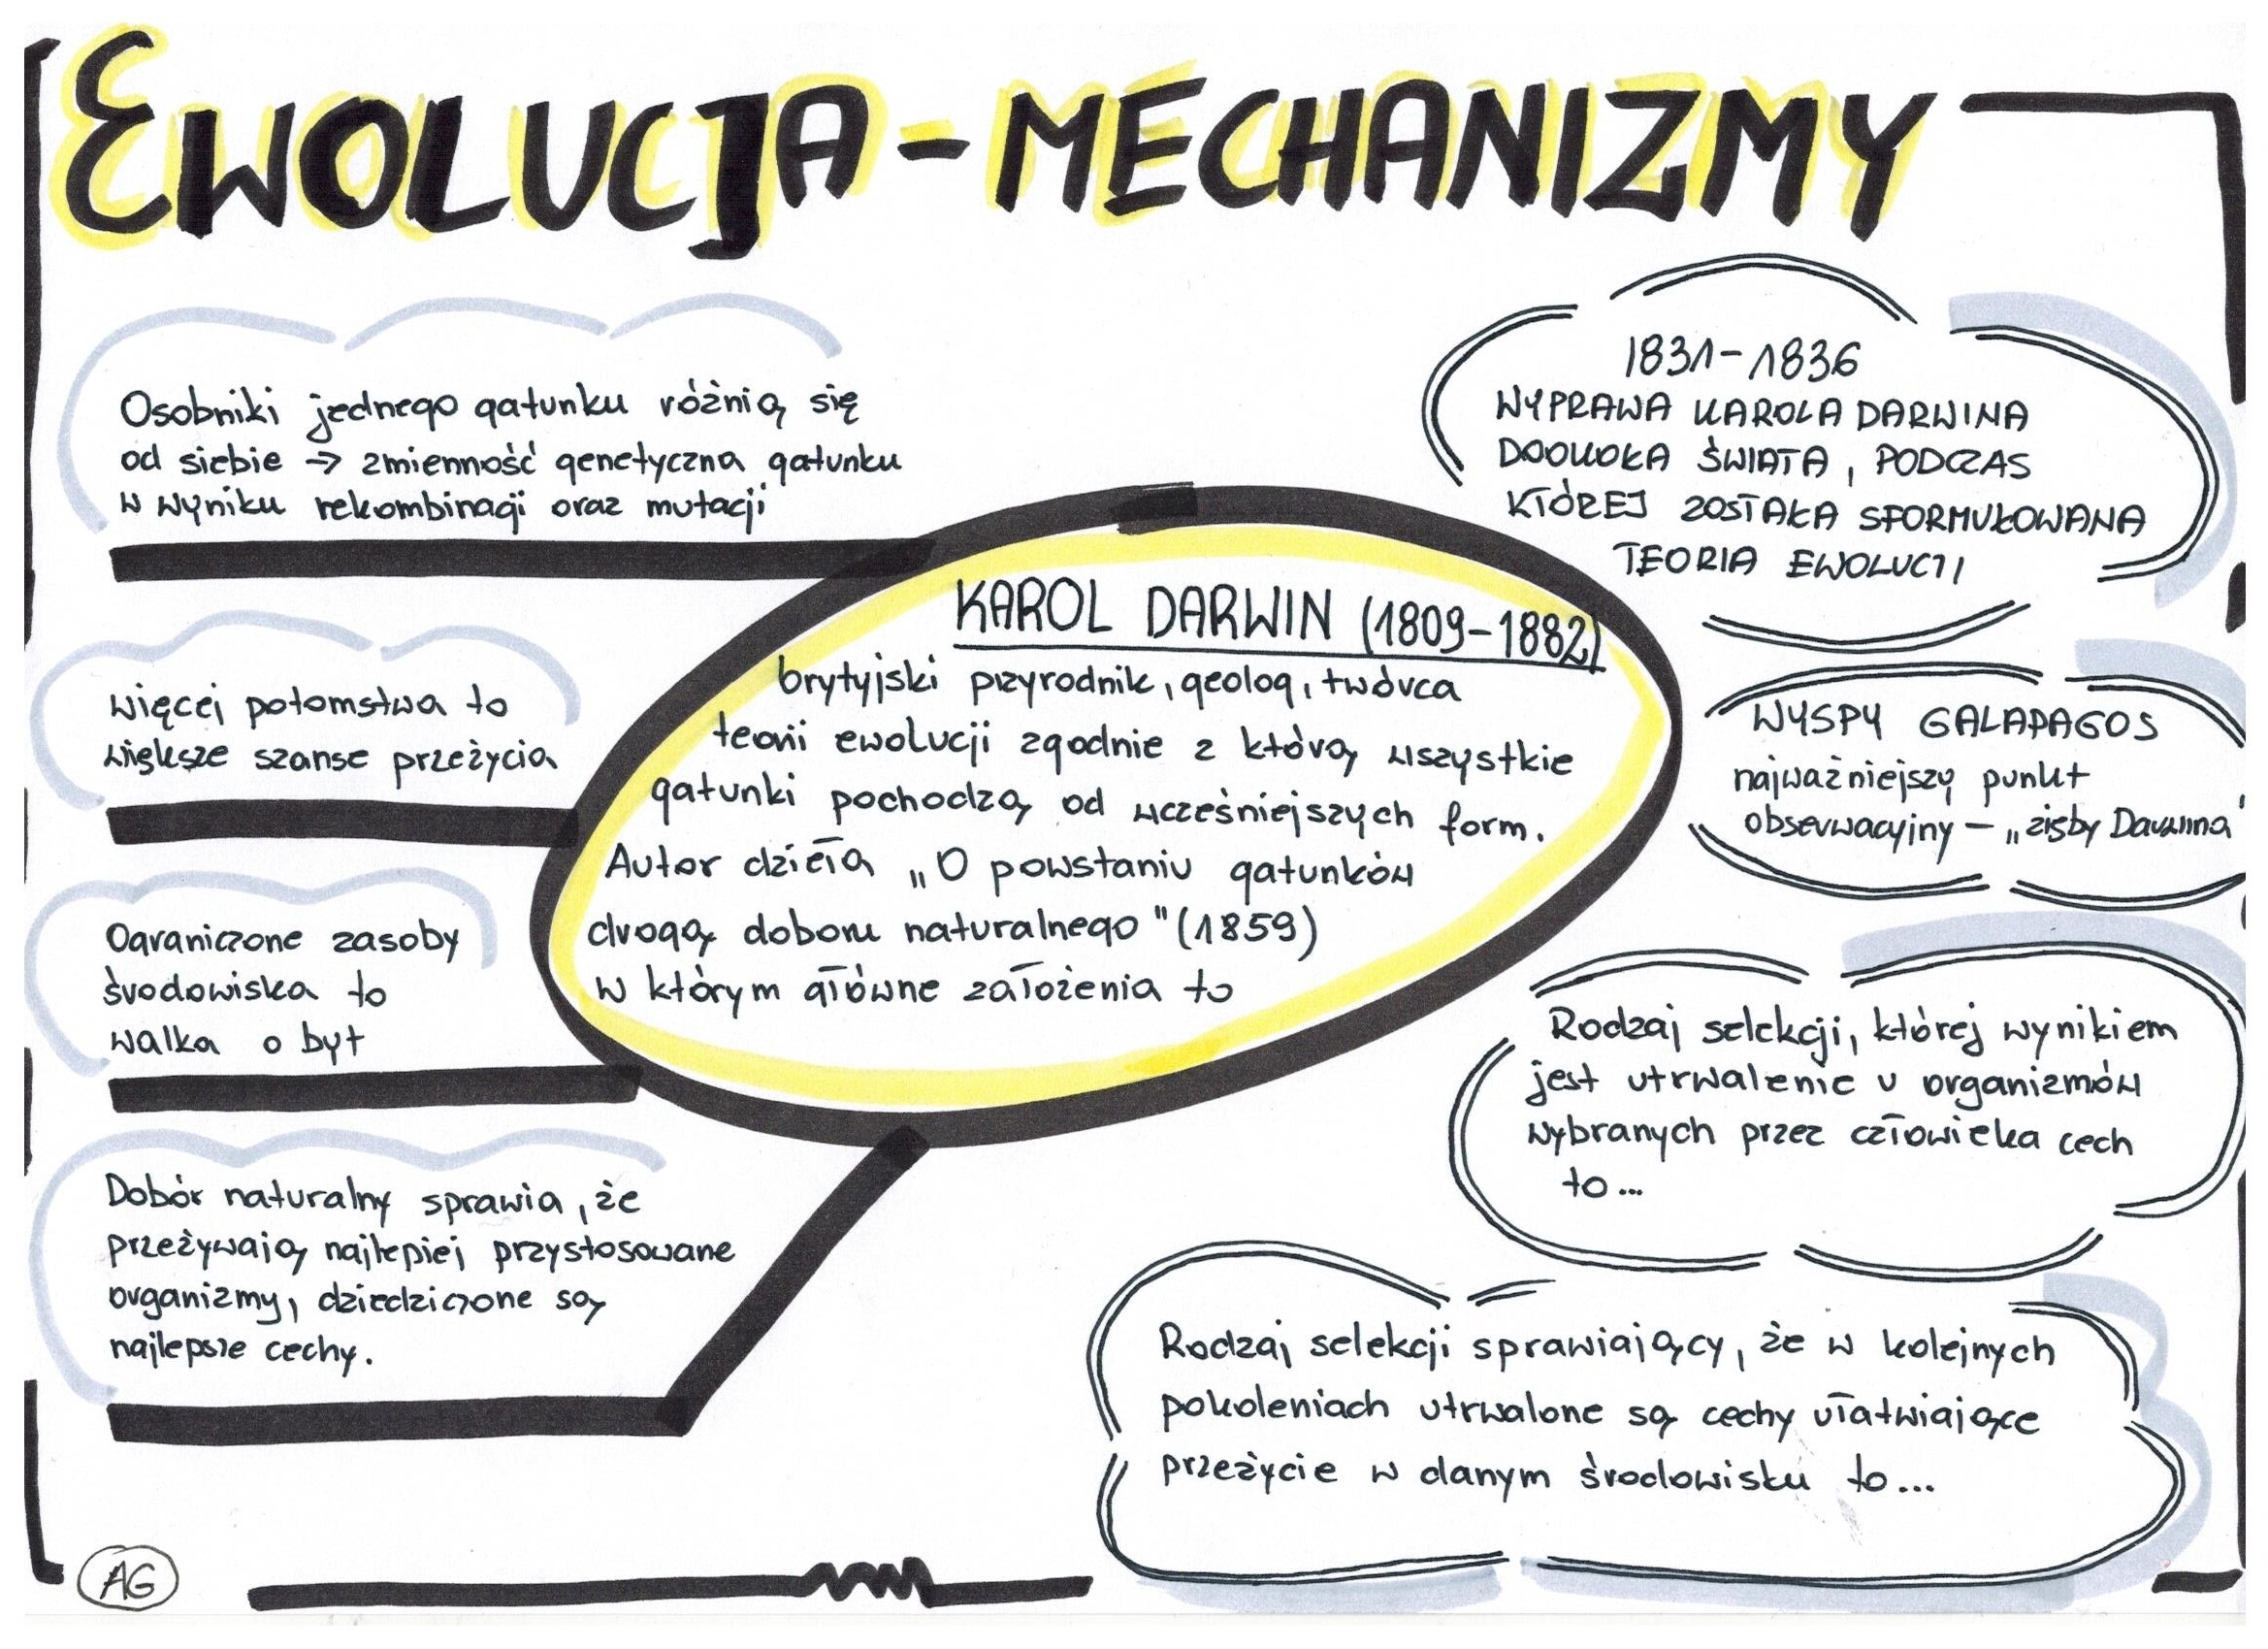 EWOLUCJA - MECHANIZMY
Osobniki jednego gatunku różnią się
od siebie → zmienność genetyczna gatunku
w wyniku rekombinacji oraz mutacji
więcej potomstwa to
większe szanse przeżycia
Ograniczone zasoby
środowiska to
walka o byt
Dobór naturalny sprawia, że
przeżywają najlepiej przystosowane
organizmy, dziedziczone są
najlepsze cechy.
KAROL DARWIN (1809-1882)
brytyjski przyrodnik, geolog, twórca
teorii ewolucji zgodnie z którą wszystkie
gatunki pochodzą od wcześniejszych form.
Autor dzieła „O powstaniu gatunków
drogą doboru naturalnego" (1859)
w którym główne założenia to
1831-1836
WYPRAWA KAROLA DARWINA
DOOKOŁA ŚWIATA, PODCZAS
KTÓREJ ZOSTAŁA SFORMUŁOWANA
TEORIA EWOLUCJI
WYSPY GALAPAGOS
najważniejszy punkt
obserwacyjny - „zięby Darwina"
Rodzaj selekcji, której wynikiem
jest utrwalenie u organizmów
wybranych przez człowieka cech
to...
Rodzaj selekcji sprawiający, że w kolejnych
pokoleniach utrwalone są cechy ułatwiające
przeżycie w danym środowisku to...
AG